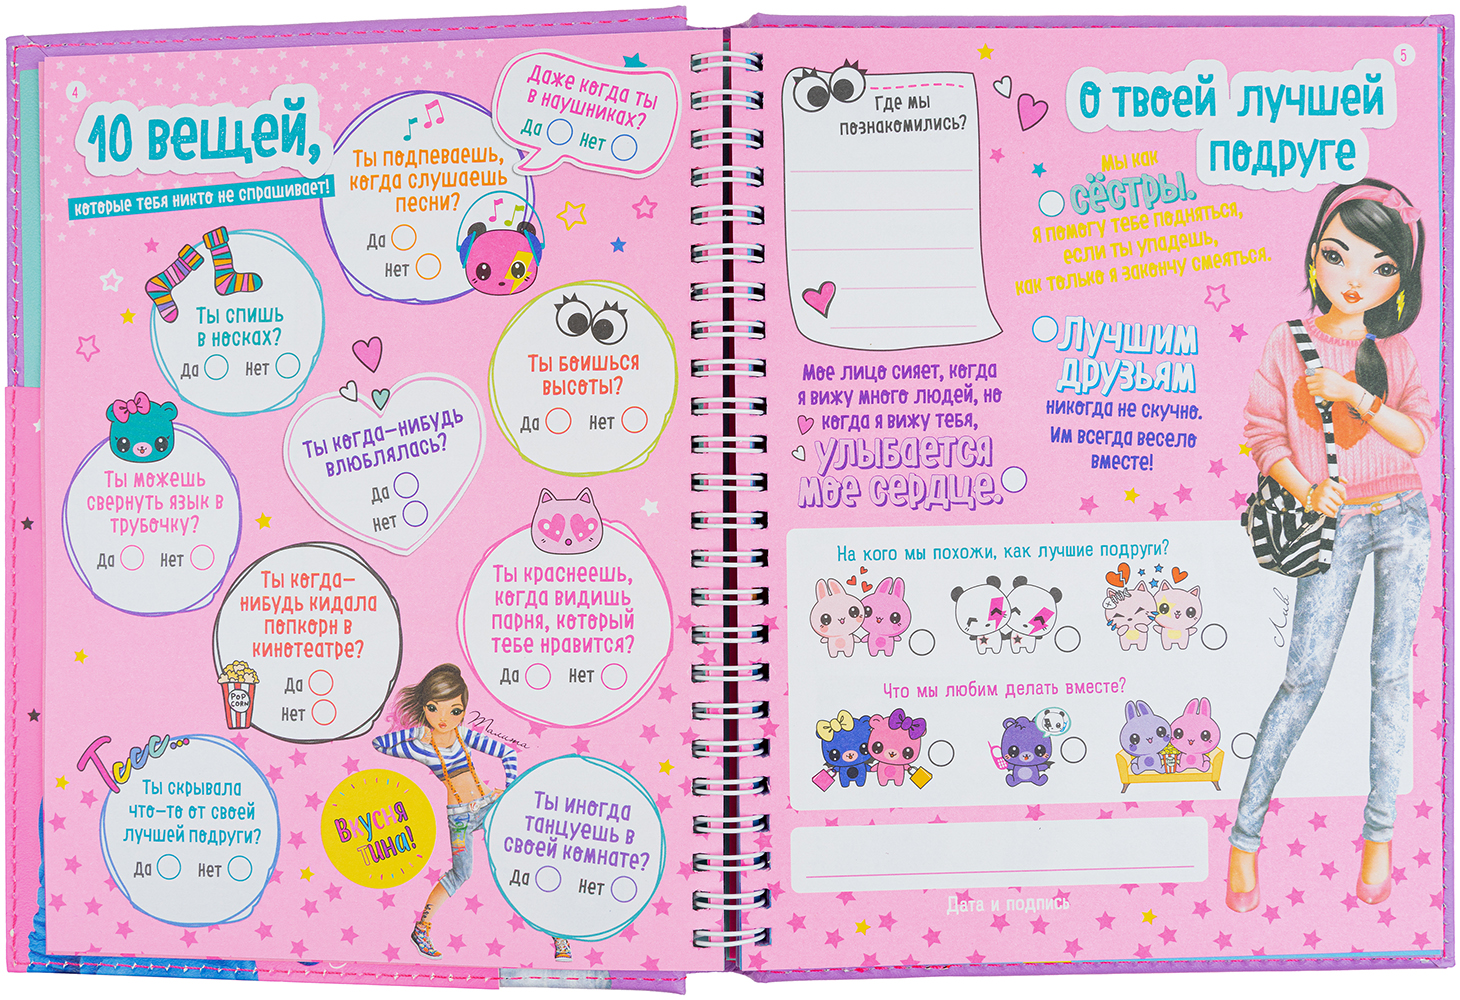 4
10 вещей,
которые тебя никто не спрашивает!
Ты подпеваешь,
когда слушаешь
песни?
Да
Нет
Даже когда ты
в наушниках?
Да Нет
Ты спишь
в носках?
Да Нет
Ты боишься
высоты?
Да Нет
Ты когда-нибудь
влюблялась?
Да
Нет
Ты можешь
свернуть язык в
трубочку?
Да Нет
Ты когда-
нибудь кидала
попкорн в
кинотеатре?
Да
Нет
POP
CORN
Ты краснеешь,
когда видишь
парня, который
тебе нравится?
Да Нет
Тссс...
Ты скрывала
что-то от своей
лучшей подруги?
Да Нет
Вкусня
тина!
Талита
Ты иногда
танцуешь в
своей комнате?
Да Нет
5
О твоей лучшей
подруге
Где мы
познакомились?
Мы как
сёстры.
Я помогу тебе подняться,
если ты упадешь,
как только я закончу смеяться.
Лучшим
друзьям
никогда не скучно.
Им всегда весело
вместе!
Мое лицо сияет, когда
я вижу много людей, но
когда я вижу тебя,
улыбается
мое сердце.
На кого мы похожи, как лучшие подруги?
Лив
Что мы любим делать вместе?
Дата и подпись